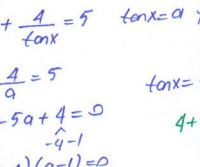 + 4/tanx = 5 tanx = a
4/a = 5 tanx =
-5a + 4 = 0 4+
-4 -1
) (a-1) = 0